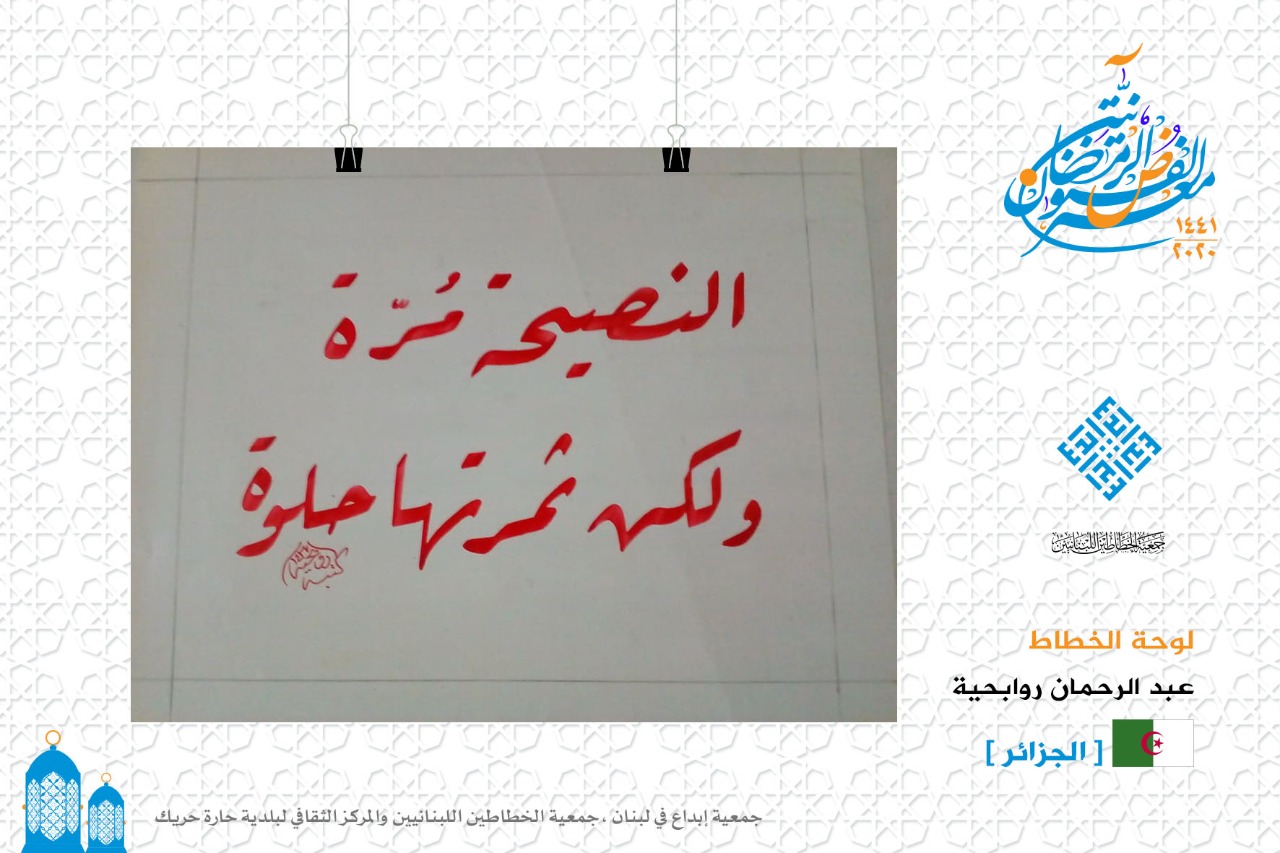 النصيحة مُرّة
ولكن ثمرتها حلوة
معرض الفنون الرمضانية
١٤٤١
٢٠٢٠
إبداع
جمعية الخطاطين اللبنانيين
لوحة الخطاط
عبد الرحمان روابحية
[ الجزائر ]
جمعية إبداع في لبنان ، جمعية الخطاطين اللبنانيين والمركز الثقافي لبلدية حارة حريك